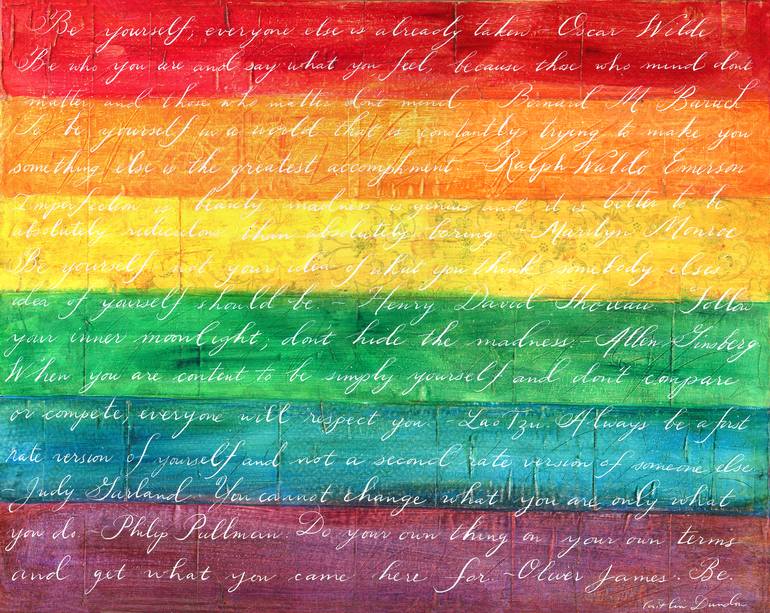 Be yourself; everyone else is already taken. Oscar Wilde
Be who you are and say what you feel, because those who mind dont
matter and those who matter dont mind Bernard M. Baruch
To be yourself in a world that is constantly trying to make you
something else is the greatest accomplishment - Ralph Waldo Emerson
Imperfection is beauty madness is genius and it is better to be
absolutely ridiculous than absolutely boring - Marilyn Monroe
Be yourself not your idea of what you think somebody elses
idea of yourself should be. - Henry David Thoreau. Follow
your inner moonlight; dont hide the madness. - Allen Ginsberg
When you are content to be simply yourself and dont compare
or compete, everyone will respect you. - Lao Tzu. Always be a first
rate version of yourself and not a second rate version of someone else
Judy Garland You cannot change what you are only what
you do. Philip Pullman. Do your own thing on your own terms
and get what you came here for. - Oliver James. Be.
Caitlin Dundon